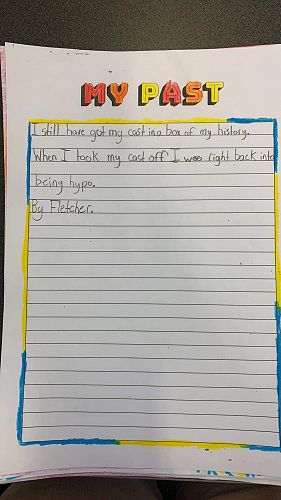 MY PAST
I still have got my cast in a box of my history.
When I took my cast off I was right back into
being hypo.
By Fletcher.